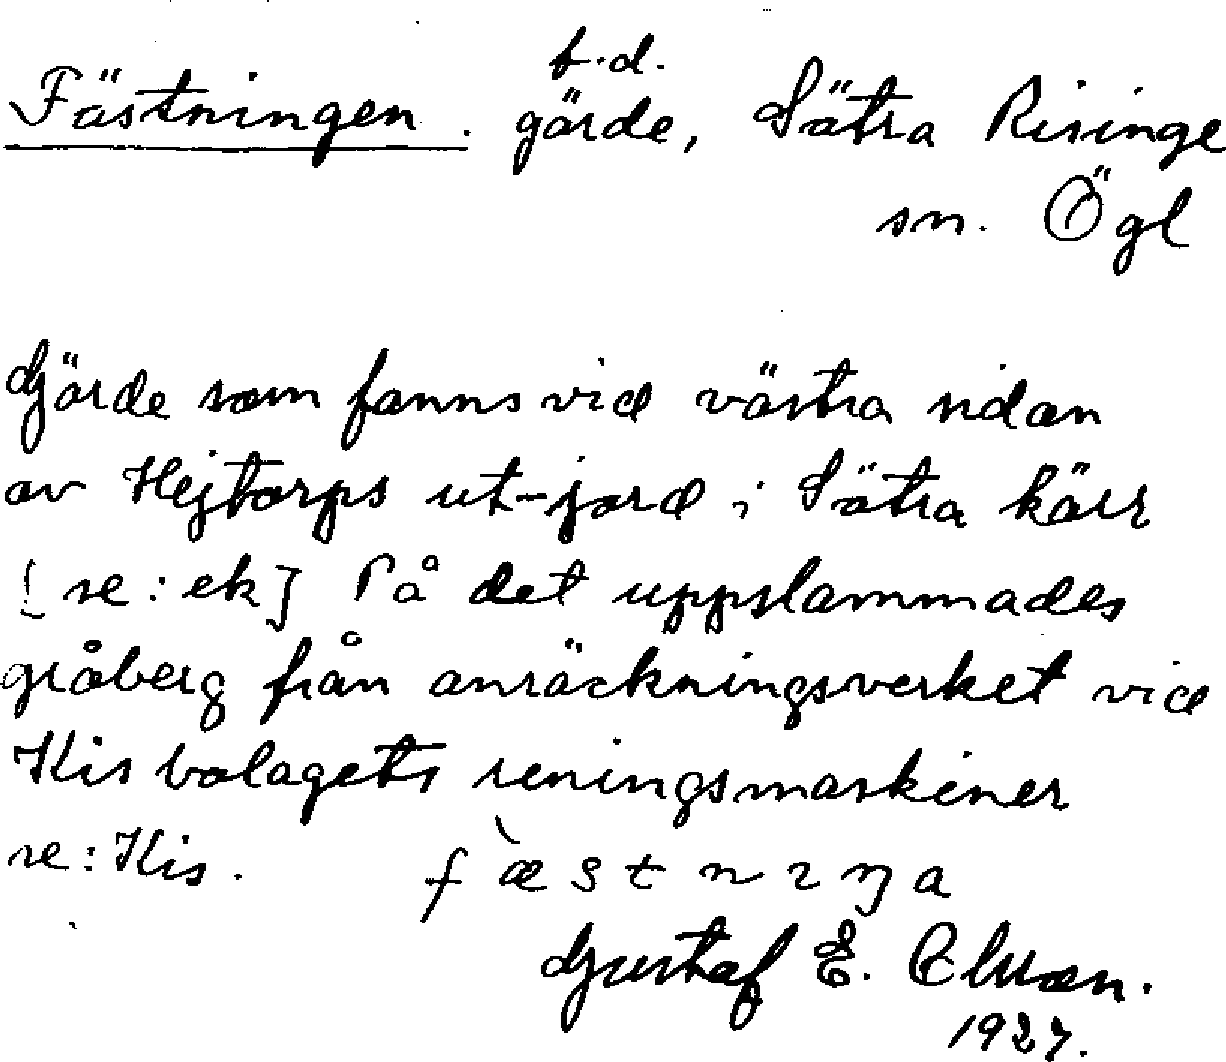 f.d.
Fästningen. gärde, Sätra Risinge
sn. Ögl
Gärde som fanns vid västra sidan
av Hejtorps ut-jord i Sätra kärr
[se: ek] På det uppslammades
gråberg från anräckningsverket vid
Kisbolagets reningsmaskiner
se: Kis. f`æstnıŋa
Gustaf E.
1927.